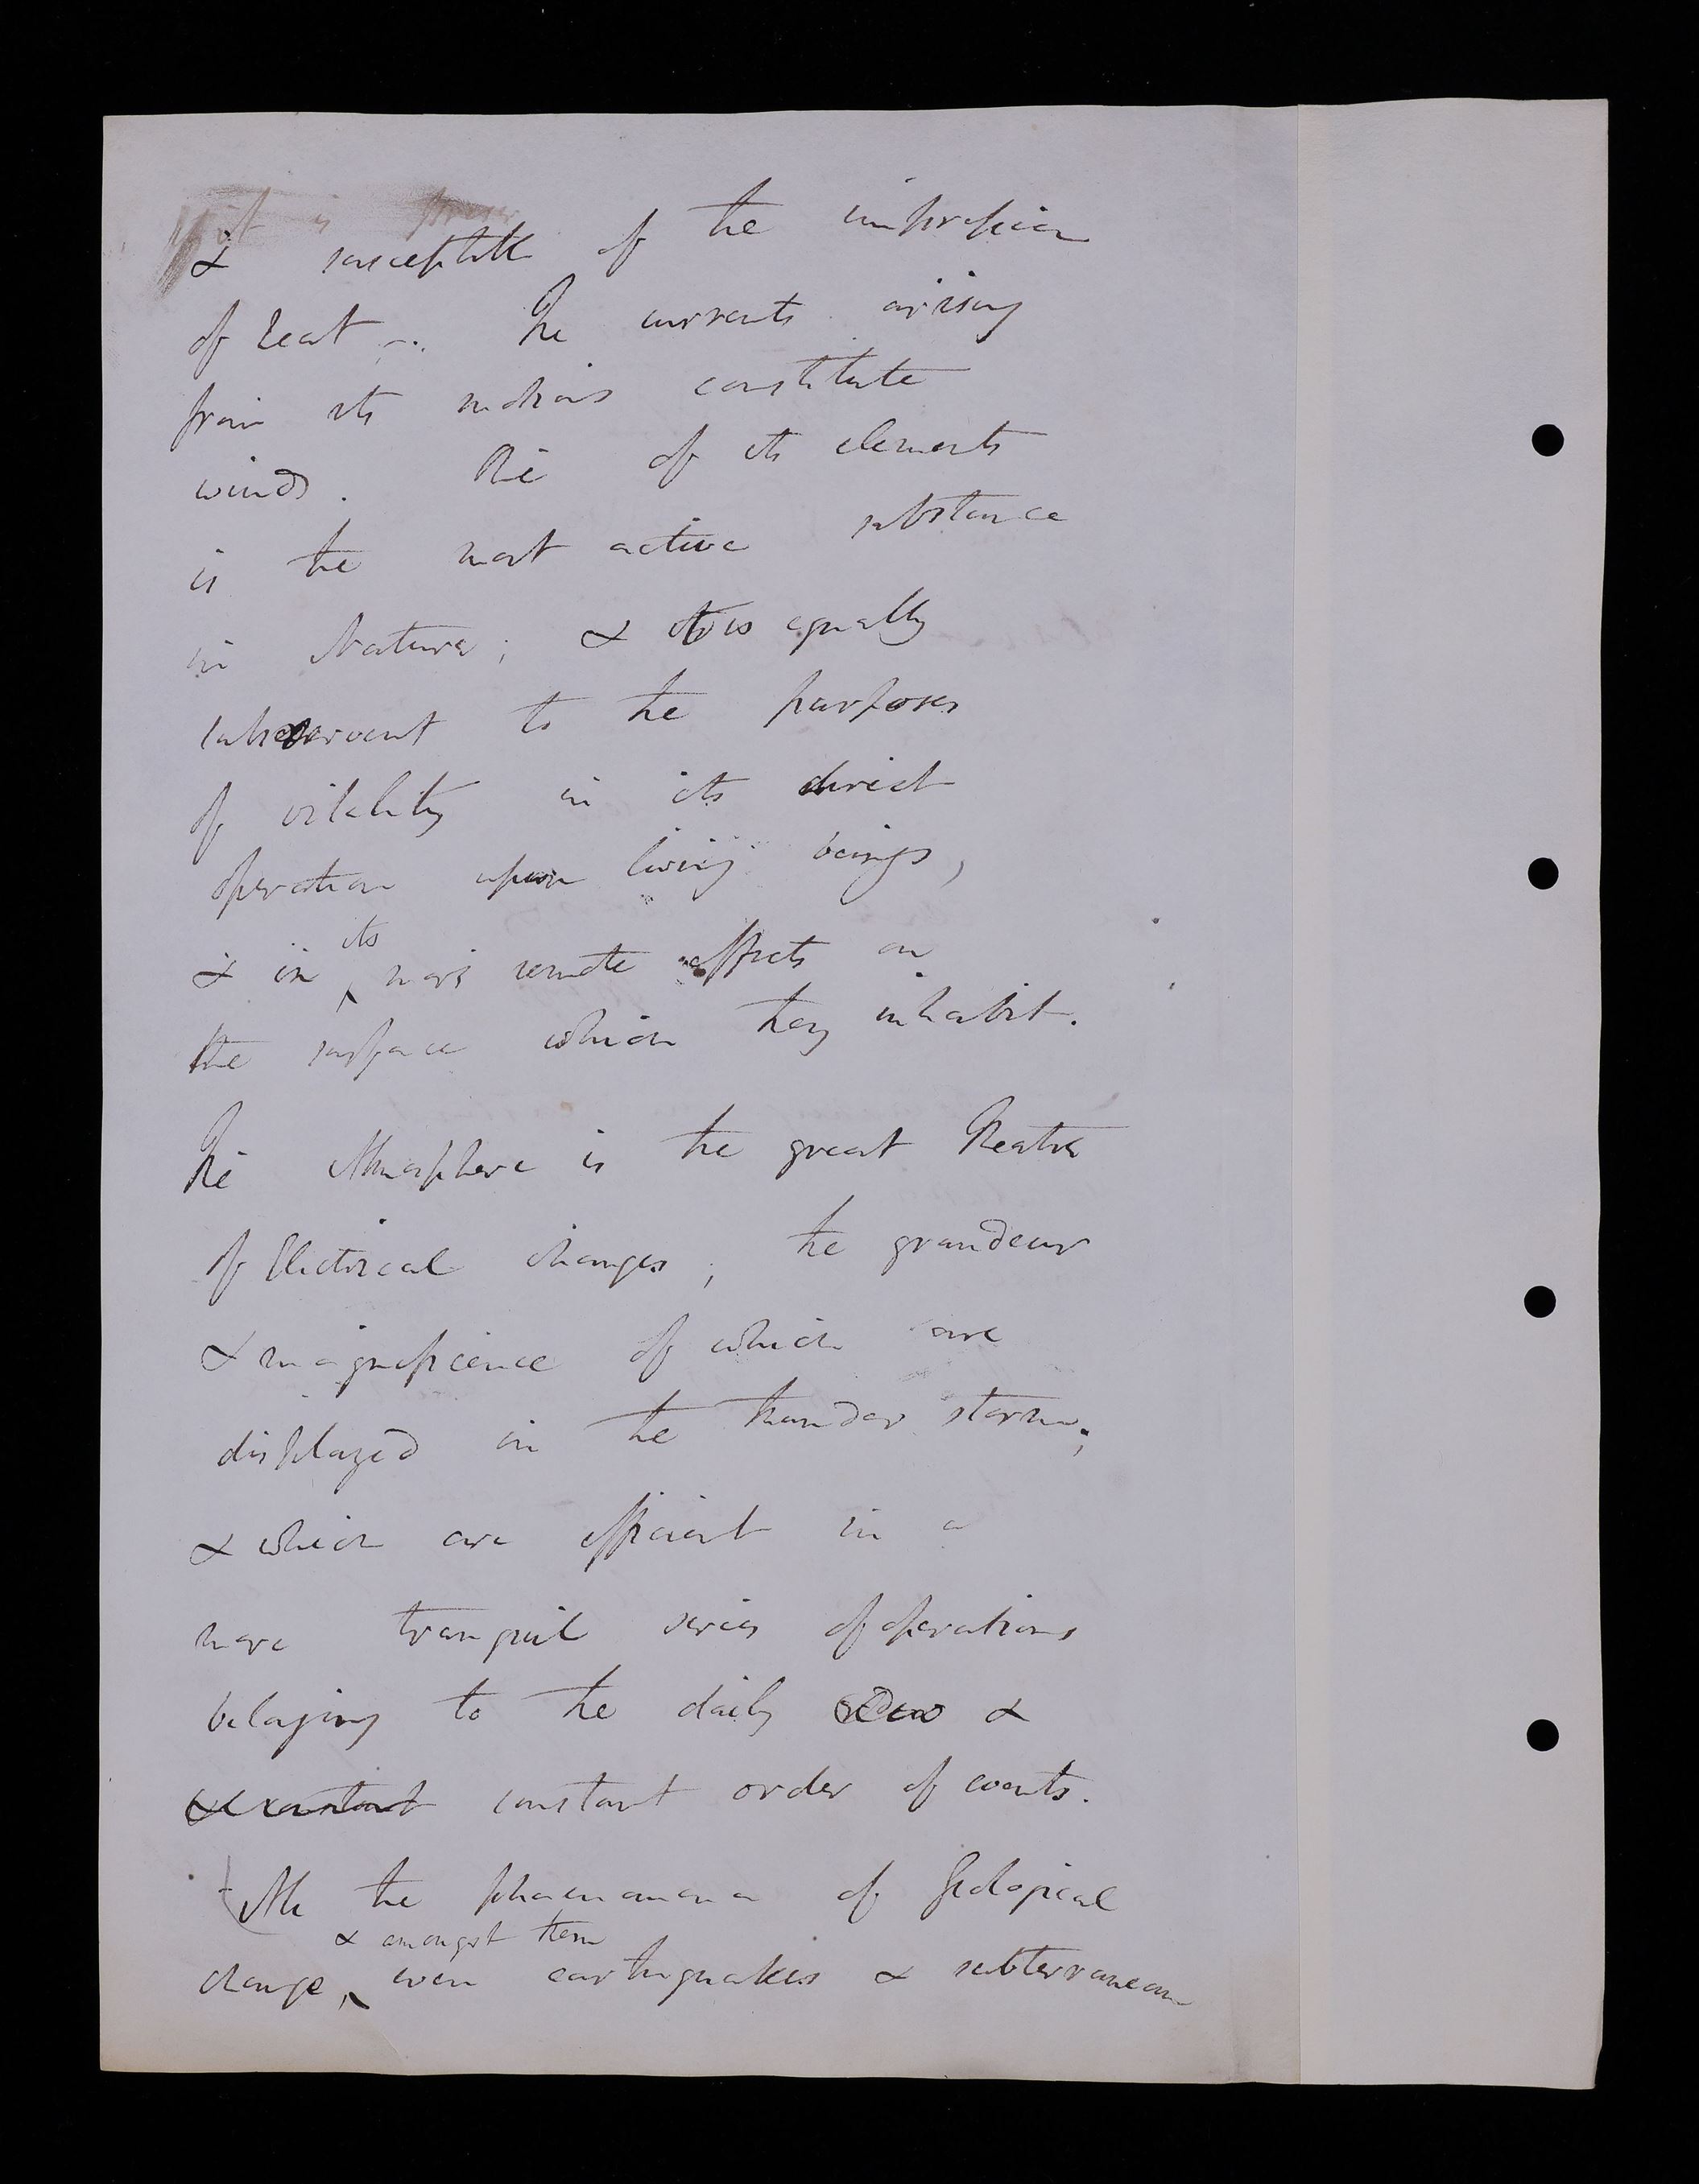 it is
& susceptible of the impression
of heat –. The currents arising
from its motions constitute
winds. The of its elements
is the most active substance
in Nature; & it is equally
subservient to the purposes
of vitality in its direct
operation upon living beings,
its
& in more remote effects on
the surface which they inhabit.
The Atmosphere is the great Theatre
of Electrical changes; the grandeur
& magnificence of which are
displayed in the thunder storm;
& which are efficient in a
more tranquil series of operations
belonging to the daily &
constant constant order of events.
All the phaenomena of Geological
& amongst them
change, even earthquakes & subterranean